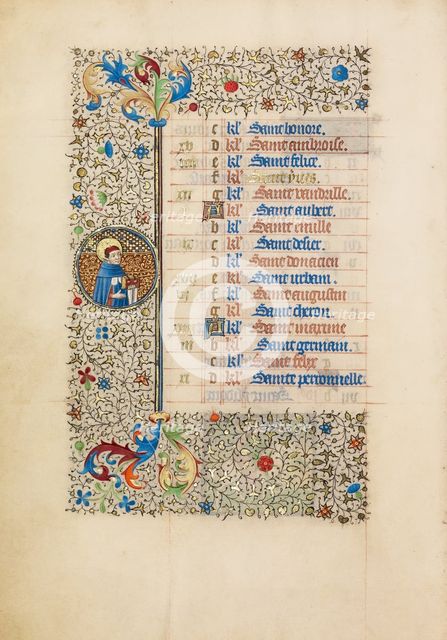 c kl Saint honore.
xv d kl Saint ambroise.
e kl Saint felice.
f kl Saint yves.
g kl Saint vandrille.
A kl Saint aubert.
b kl Saint emille
c kl Saint desier.
d kl Saint donacien
e kl Saint urbain.
f kl Saint augustin
g kl Saint cheron.
A kl Saint maxime
b kl Saint germain.
c kl Saint felix
xi d kl Sainte peronnelle.
heritage